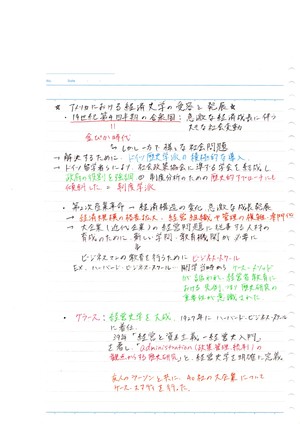 ★ アメリカにおける経済史学の受容と発展 ★
・19世紀第4四半期の合衆国：急激な経済成長に伴う
大きな社会変動
||
金ぴか時代
↳しかし一方で様々な社会問題
→ 解決するために、ドイツ歴史学派の積極的な導入
→ ドイツ留学者らにより、社会政策協会に準ずる学会を結成し
政府の役割を強調。の制度分析のための歴史的アプローチにも
= 制度学派
・第2次産業革命 → 経済構造の変化、急激な成長発展
→ 経済規模の拡大、経営組織や管理の複雑・専門化
→ 大企業（近代企業）の経営問題に従事する人材の
育成のために新しい学問・教育機関が必要に
↳
ビジネスマンの教育を行うためにビジネス・スクール
EX. ハーバード・ビジネス・スクール 開学当時から ケース・メソッド
が 経営教育に
おける 歴史研究の
重要性が意識された
・グラース：経営史学を大成。1927年にハーバード・ビジネス・スクール
に着任。
39年 「経営と資本主義－経営史入門」
を著し、"administration（政策・管理・統制）の
観点から 歴史研究」と、経営史学を明確に定義。
ラーソンと共に、 大企業について
ケース・スタディを行った。